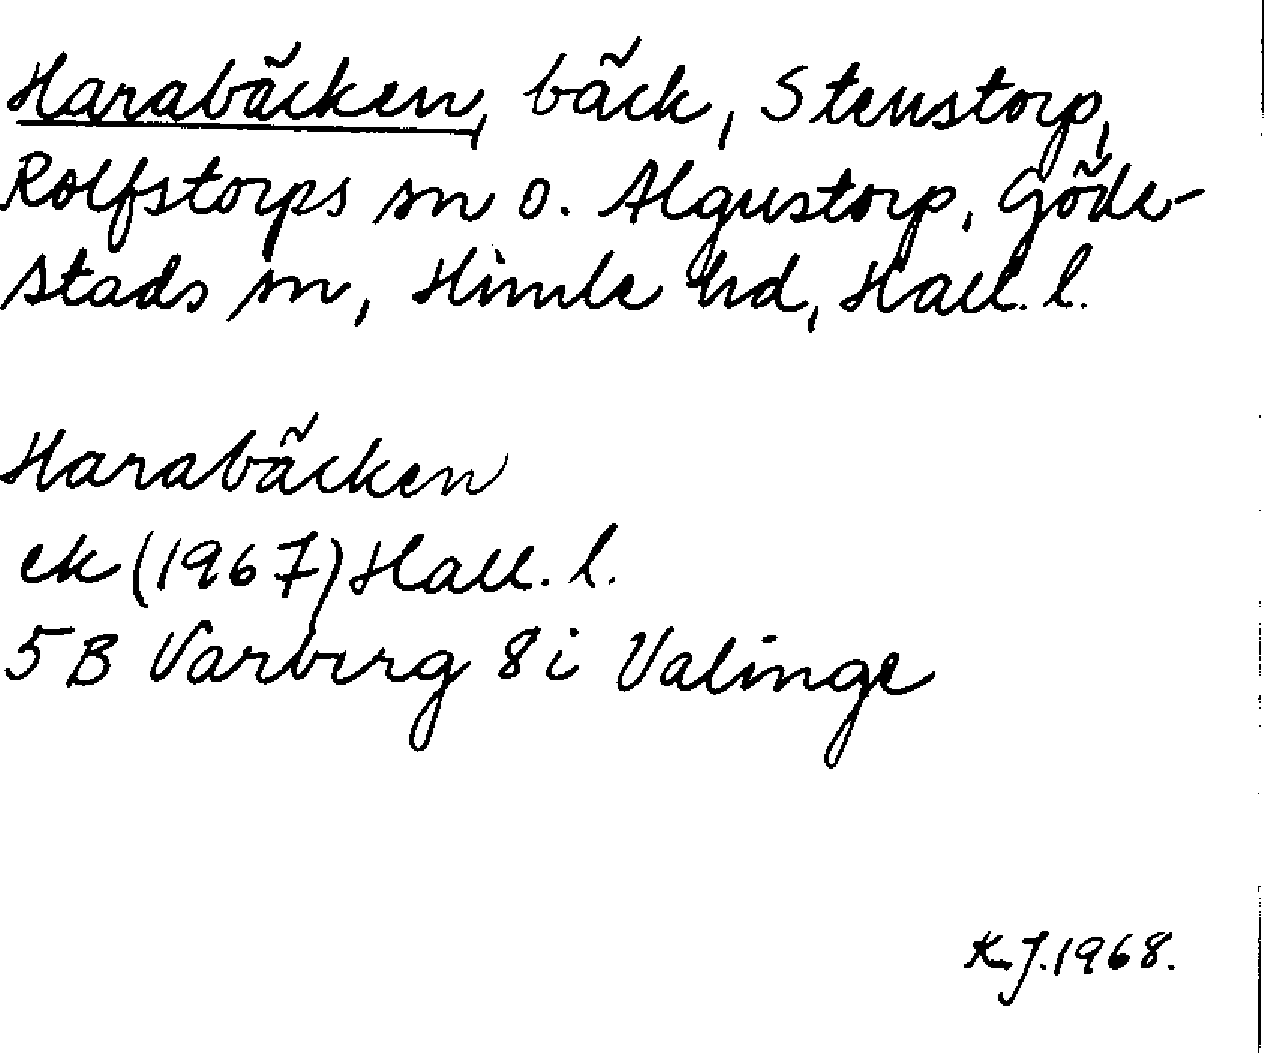 Harabäcken, bäck, Stenstorp,
Rolfstorps sn o. Algustorp, Göde-
stads sn, Himle hd, Hall. l.
Harabäcken
ek (1967) Hall. l.
5B Varberg 8i Valinge
K.J. 1968.